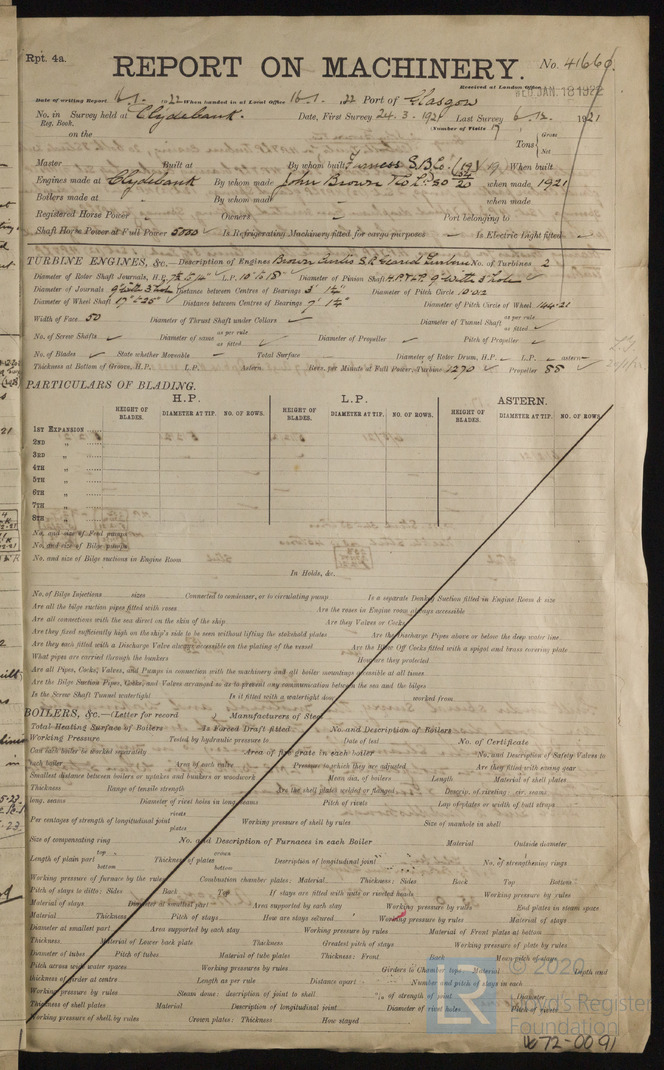 Rpt. 4a.
REPORT ON MACHINERY. No. 41660.
Received at London Office WED. JAN. 18 1922
Date of writing Report 16.1. 1922 When handed in at Local Office 16.1. 22 Port of Glasgow
No. in Survey held at Clydebank. Date, First Survey 24.3.1921 Last Survey 6.12. 1921
Reg. Book. (Number of Visits 17
on the Tons { Gross
Net
Master Built at By whom built Furness S.B. Co. (19) When built
Engines made at Clydebank By whom made John Brown & Co Ld. when made 1921
Boilers made at By whom made when made
Registered Horse Power Owners Port belonging to
Shaft Horse Power at Full Power 5000 Is Refrigerating Machinery fitted for cargo purposes Is Electric Light fitted
TURBINE ENGINES, &c.—Description of Engines Brown Curtis S.R. Geared Turbine No. of Turbines 2
Diameter of Rotor Shaft Journals, H.P. L.P. Diameter of Pinion Shaft H.P. & L.P. 9" with 3" hole
Diameter of Journals 9" with 3" hole Distance between Centres of Bearings Diameter of Pitch Circle
Diameter of Wheel Shaft Distance between Centres of Bearings Diameter of Pitch Circle of Wheel 144.21
Width of Face 50 Diameter of Thrust Shaft under Collars Diameter of Tunnel Shaft as per rule
as fitted
No. of Screw Shafts Diameter of same as per rule Diameter of Propeller Pitch of Propeller
as fitted
No. of Blades State whether Moveable Total Surface Diameter of Rotor Drum, H.P. L.P. astern
Thickness at Bottom of Groove, H.P. L.P. Astern Revs. per Minute at Full Power, Turbine 1270 Propeller 88
PARTICULARS OF BLADING.
H.P. L.P. ASTERN.
HEIGHT OF BLADES. DIAMETER AT TIP. NO. OF ROWS. HEIGHT OF BLADES. DIAMETER AT TIP. NO. OF ROWS. HEIGHT OF BLADES. DIAMETER AT TIP. NO. OF ROWS.
1ST EXPANSION
2ND „
3RD „
4TH „
5TH „
6TH „
7TH „
8TH „
No. and size of Feed pumps
No. and size of Bilge pumps
No. and size of Bilge suctions in Engine Room
In Holds, &c.
No. of Bilge Injections sizes Connected to condenser, or to circulating pump Is a separate Donkey Suction fitted in Engine Room & size
Are all the bilge suction pipes fitted with roses Are the roses in Engine room always accessible
Are all connections with the sea direct on the skin of the ship Are they Valves or Cocks
Are they fixed sufficiently high on the ship's side to be seen without lifting the stokehold plates Are the Discharge Pipes above or below the deep water line
Are they each fitted with a Discharge Valve always accessible on the plating of the vessel Are the Blow Off Cocks fitted with a spigot and brass covering plate
What pipes are carried through the bunkers How are they protected
Are all Pipes, Cocks, Valves, and Pumps in connection with the machinery and all boiler mountings accessible at all times
Are the Bilge Suction Pipes, Cocks, and Valves arranged so as to prevent any communication between the sea and the bilges
Is the Screw Shaft Tunnel watertight Is it fitted with a watertight door worked from
BOILERS, &c.—(Letter for record ) Manufacturers of Steel
Total Heating Surface of Boilers Is Forced Draft fitted No. and Description of Boilers
Working Pressure Tested by hydraulic pressure to Date of test No. of Certificate
Can each boiler be worked separately Area of fire grate in each boiler No. and Description of Safety Valves to
each boiler Area of each valve Pressure to which they are adjusted Are they fitted with easing gear
Smallest distance between boilers or uptakes and bunkers or woodwork Mean dia. of boilers Length Material of shell plates
Thickness Range of tensile strength Are the shell plates welded or flanged Descrip. of riveting: cir. seams
long. seams Diameter of rivet holes in long. seams Pitch of rivets Lap of plates or width of butt straps
Per centages of strength of longitudinal joint rivets
plates Working pressure of shell by rules Size of manhole in shell
Size of compensating ring No. and Description of Furnaces in each Boiler Material Outside diameter
Length of plain part top
bottom Thickness of plates crown
bottom Description of longitudinal joint No. of strengthening rings
Working pressure of furnace by the rules Combustion chamber plates: Material Thickness: Sides Back Top Bottom
Pitch of stays to ditto: Sides Back Top If stays are fitted with nuts or riveted heads Working pressure by rules
Material of stays Diameter at smallest part Area supported by each stay Working pressure by rules End plates in steam space
Material Thickness Pitch of stays How are stays secured Working pressure by rules Material of stays
Diameter at smallest part Area supported by each stay Working pressure by rules Material of Front plates at bottom
Thickness Material of Lower back plate Thickness Greatest pitch of stays Working pressure of plate by rules
Diameter of tubes Pitch of tubes Material of tube plates Thickness: Front Back Mean pitch of stays
Pitch across wide water spaces Working pressures by rules Girders to Chamber tops: Material Depth and
thickness of girder at centre Length as per rule Distance apart Number and pitch of stays in each
Working pressure by rules Steam dome: description of joint to shell % of strength of joint Diameter
Thickness of shell plates Material Description of longitudinal joint Diameter of rivet holes Pitch of rivets
Working pressure of shell by rules Crown plates: Thickness How stayed
© 2020
Lloyd's Register
Foundation
W72-0091